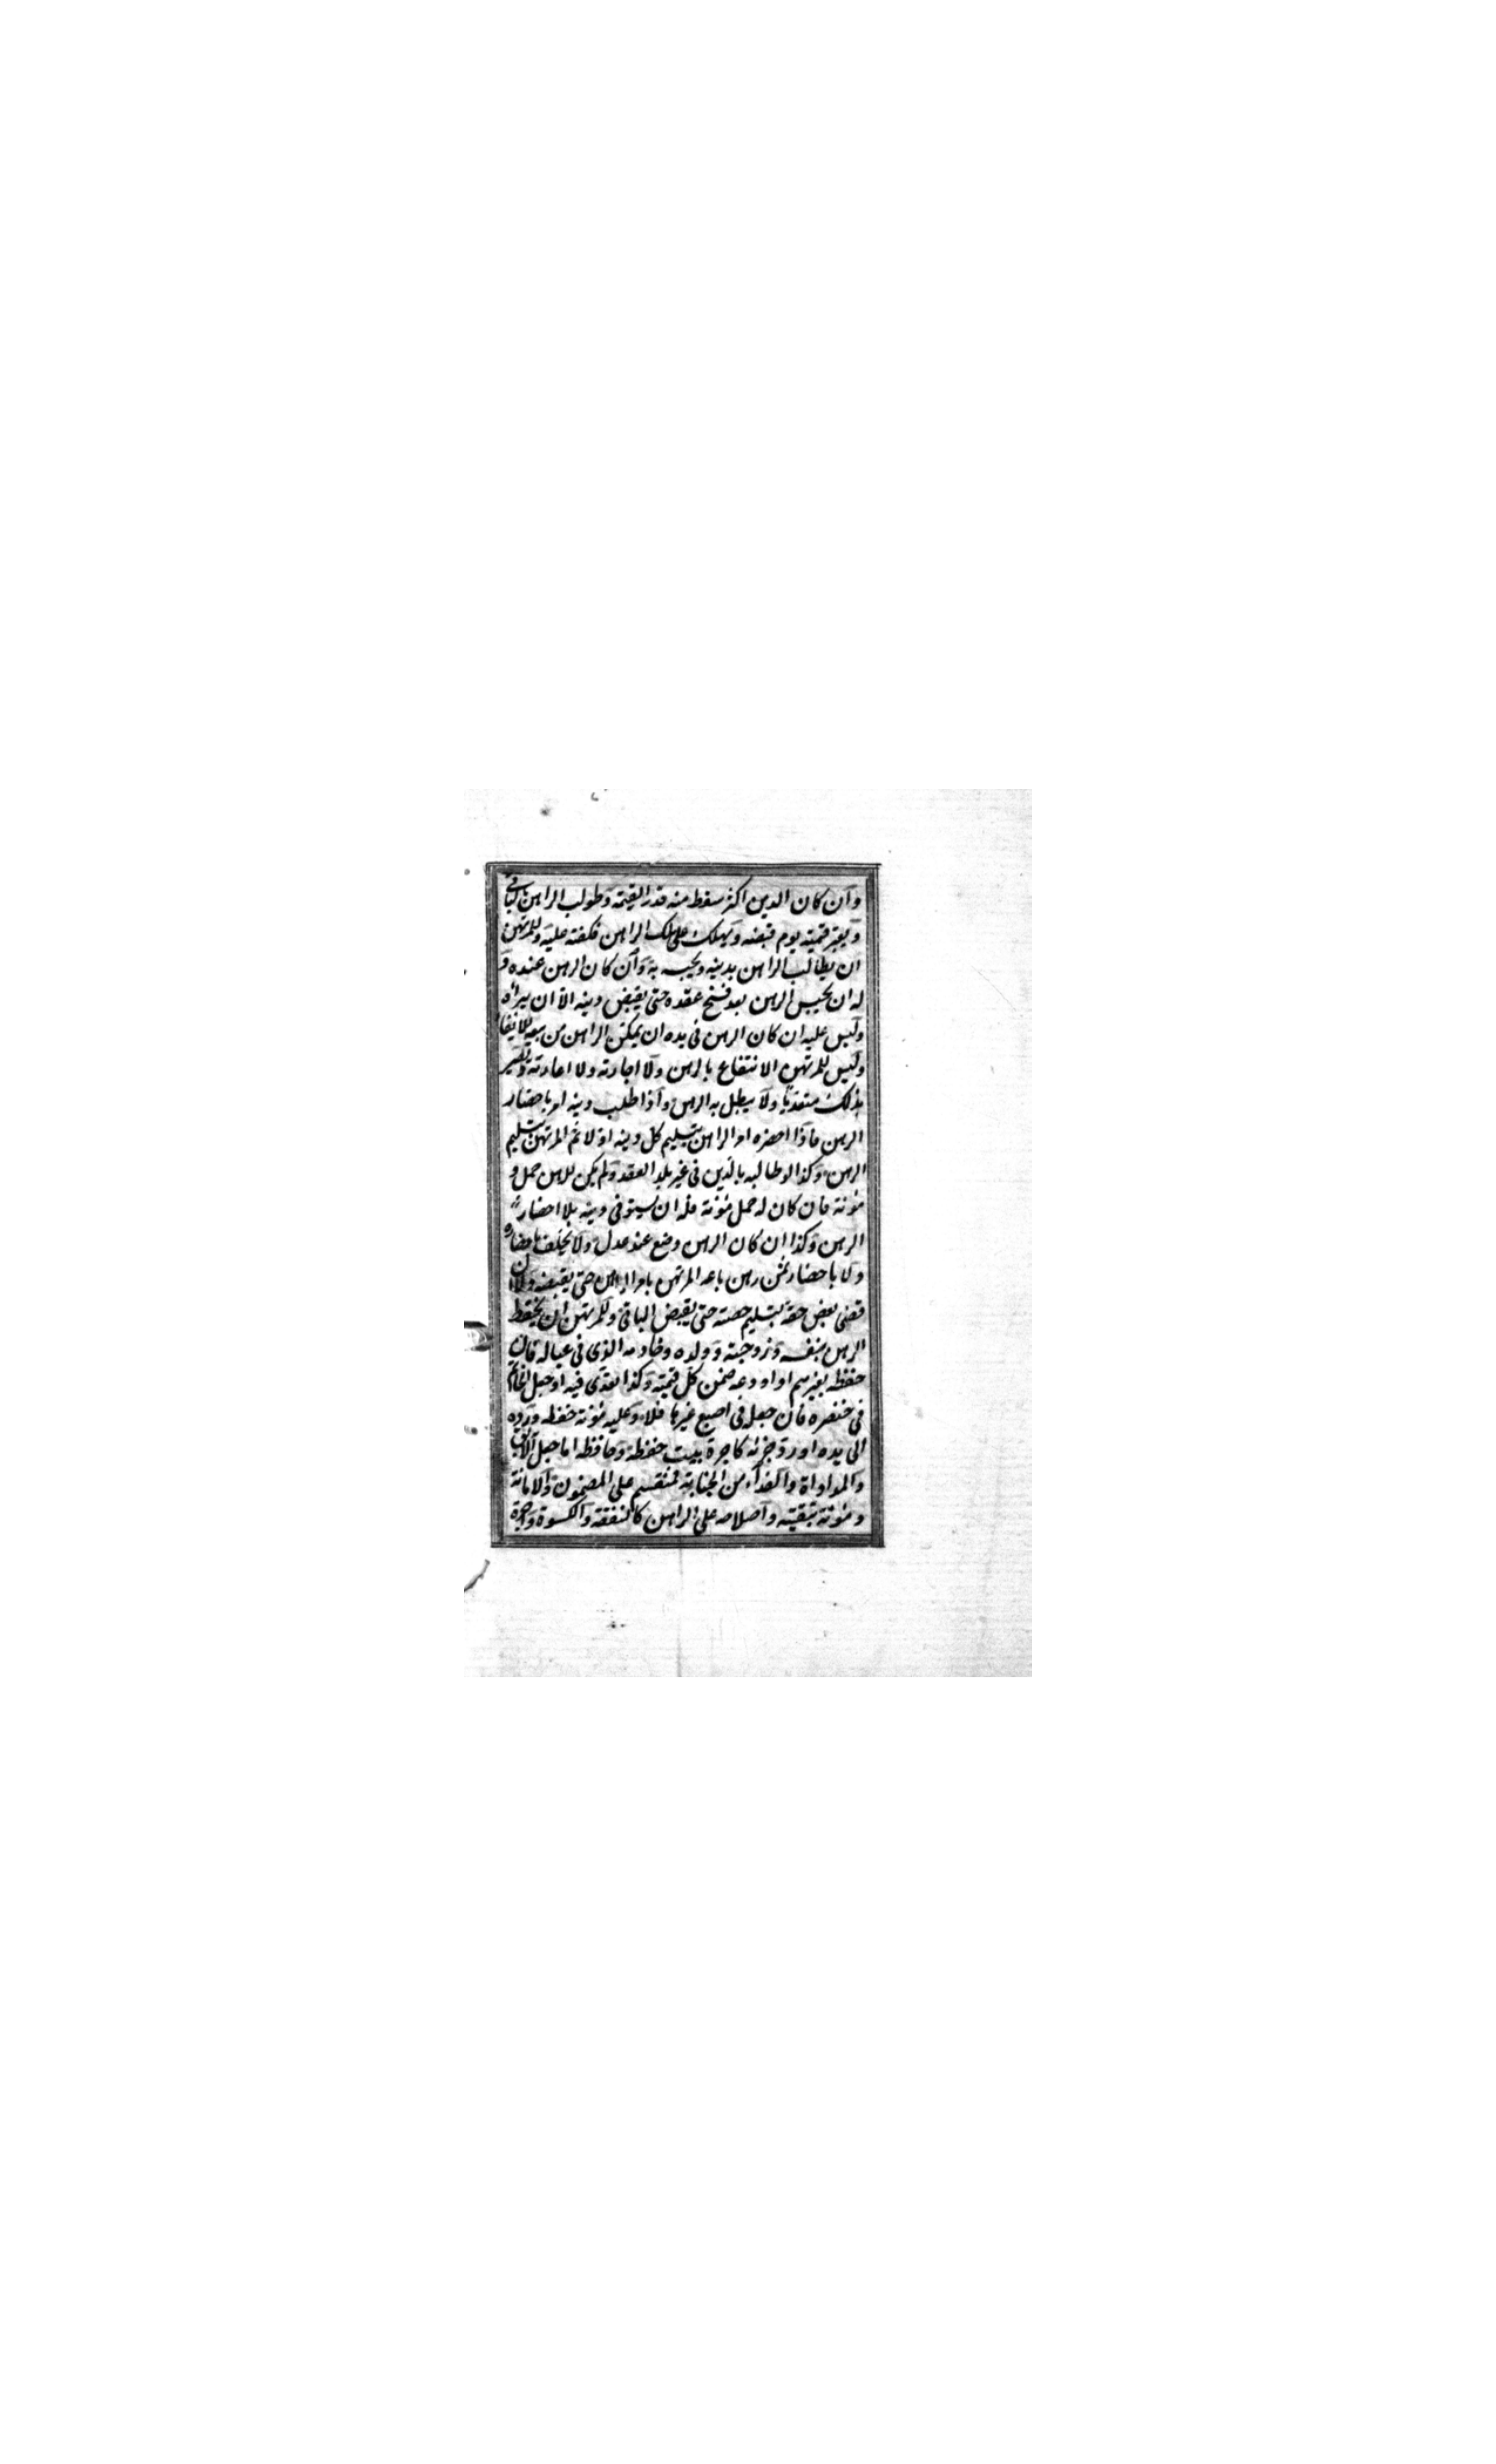 وان كان الدين اكثر سقط منه قدر القيمة وطولب الراهن بالباقي
وتعتبر قيمته يوم قبضه ويهلك على ملك الراهن فكفنه عليه وللمرتهن
ان يطالب الراهن بدينه ويحبسه به وان كان الرهن عنده و
له ان يحبس الرهن بعد فسخ عقده حتى يقبض دينه الا ان يبرأه
وليس عليه ان كان الرهن في يده ان يمكن الراهن من بيعه للايفا
وليس للمرتهن الانتفاع بالرهن ولا اجارته ولا اعارته ويصير
بذلك متعديا ولا يبطل به الرهن واذا طلب دينه امر باحضار
الرهن فاذا احضره امر الراهن بتسليم كل دينه اولا ثم المرتهن بتسليم
الرهن وكذا لو طالبه بالدين في غير بلد العقد ولم يكن للرهن حمل و
مؤنة فان كان له حمل مؤنة فله ان يستوفي دينه بلا احضار
الرهن وكذا ان كان الرهن وضع عند عدل ولا يكلف باحضاره
ولا باحضار ثمن رهن باعه المرتهن بامر الراهن حتى يقبضه ولا ان
قضى بعض حقه بتسليم حصته حتى يقبض الباقي وللمرتهن ان يحفظ
الرهن بنفسه وزوجته وولده وخادمه الذي في عياله فان
حفظه بغيرهم او اودعه ضمن كل قيمته وكذا ان تعدى فيه او جعل الخاتم
في خنصره فان جعله في اصبع غيرها فلا وعليه مؤنة حفظه ورده
الى يده او رد جزئه كاجرة بيت حفظه وحافظه اما جعل الآبق
والمداواة والفداء من الجناية فمنقسم على المضمون والامانة
ومؤنة تبقيته واصلاحه على الراهن كالنفقة والكسوة واجرة